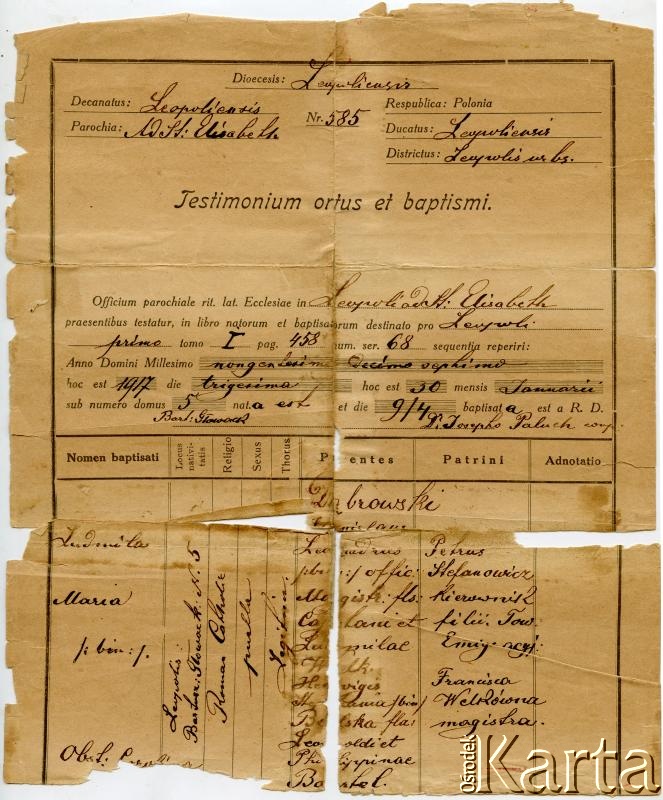 Dioecesis: Leopoliensis
Decanatus: Leopoliensis
Nr. 585
Respublica: Polonia
Parochia: Ad St: Elisabeth
Ducatus: Leopoliensis
Districtus: Leopolis urbs.
Testimonium ortus et baptismi.
Officium parochiale rit. lat. Ecclesiae in Leopoli ad St: Elisabeth
praesentibus testatur, in libro natorum et baptisatorum destinato pro Leopoli
primo tomo I pag. 458 num. ser. 68 sequentia reperiri:
Anno Domini Millesimo nongentesimo decimo septimo
hoc est 1917 die trigesima hoc est 30 mensis Januarii
sub numero domus 5 nat. a est et die 9/4 baptisat a est a R. D.
Bart: Głowack Josepho Paluch coop.
Nomen baptisati
Locus nativitatis
Religio
Sexus
Thorus
Parentes
Patrini
Adnotatio
Ludmiła
Maria
/: bin :/.
Leopolis:
Bartosz: Głowack: N. 5
Roman Catholic
puella
Legitim.
Dąbrowski
/:bin:/ offic:
Magistr: fls:
et
Ludmilae
Hedvigis
/bin/
Bielska fla:
Leopoldi et
Philippinae
Bartel.
Petrus
Stefanowicz
kierownik
filii. Tow:
Emigracyj:
Francisca
Welzówna
magistra.
Obst:
Ośrodek
Karta